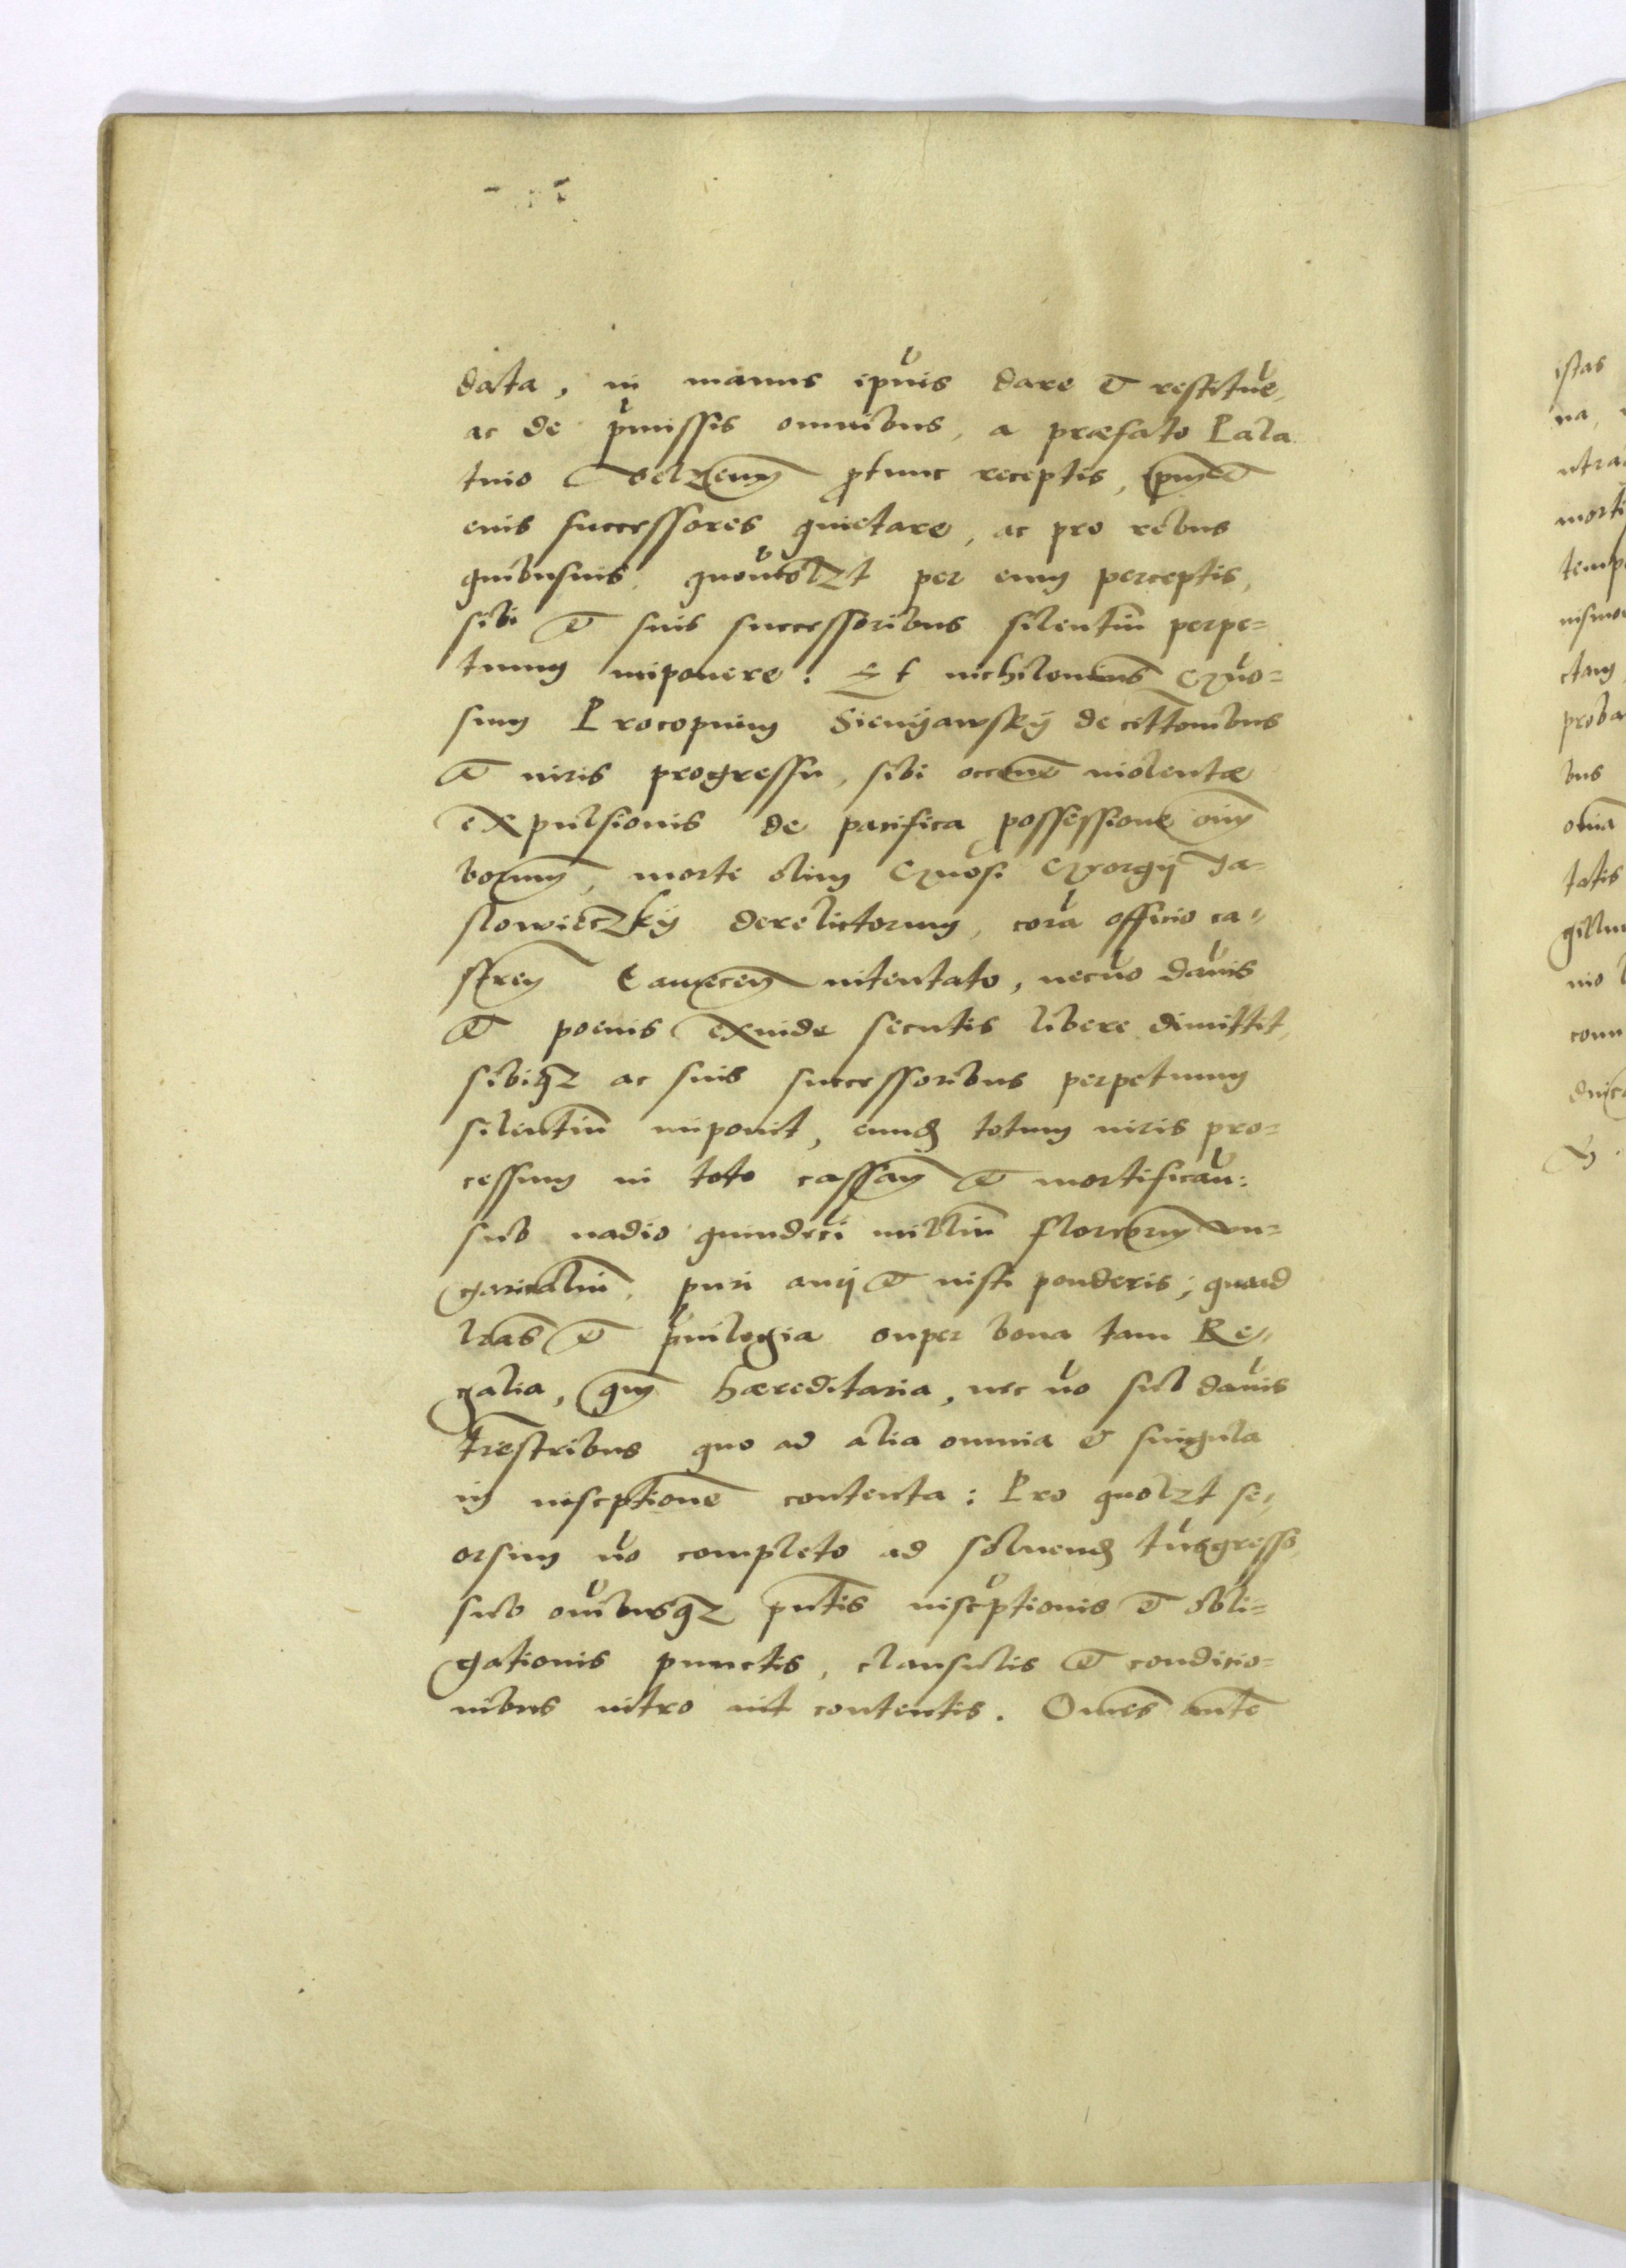 data, in manus ipius dare et restitue,
ac de pmissis omnibus, a præfato Pala
tino Belzen ptunc receptis, ipm et
eius successores quietare, ac pro rebus
quibusuis, quouislzt per eum perceptis,
sibi et suis successoribus silentiu perpe=
tuum imponere. Et nichilominus Gnro=
sum Procopium Sienyawsky de cittonibus
et iuris progressu, sibi occone violentæ
expulsionis de pacifica possessione oim
bonorum, morte olim Gnrosi Georgy Ja=
slowieczky derelictorum, cora officio ca=
stren intentato, necno damis
et poenis exinde secutis libere dimittit,
sibiqz ac suis successoribus perpetuum
silentiu imponit, eundq totum iuris pro=
cessum in toto cassan et mortifican:
sub vadio quindeci milliu florenorum vn=
garicaliu, puri auri et iusti ponderis; quoad
lras et priuilegia super bona tam Re=
galia, qm hæreditaria, nec no sub damis
trestribus quo ad alia omnia et singula
in inscptione contenta: Pro quolzt se=
orsim no completo ad soluend tnsgresso,
sub oibusqz pntis inscptionis et obli=
gationis punctis, clausulis et conditio=
nibus intro nit contentis. Omes ante
istas
na,
mort
temp
ctam
proba
bus
omia
tatis
gillu
nio